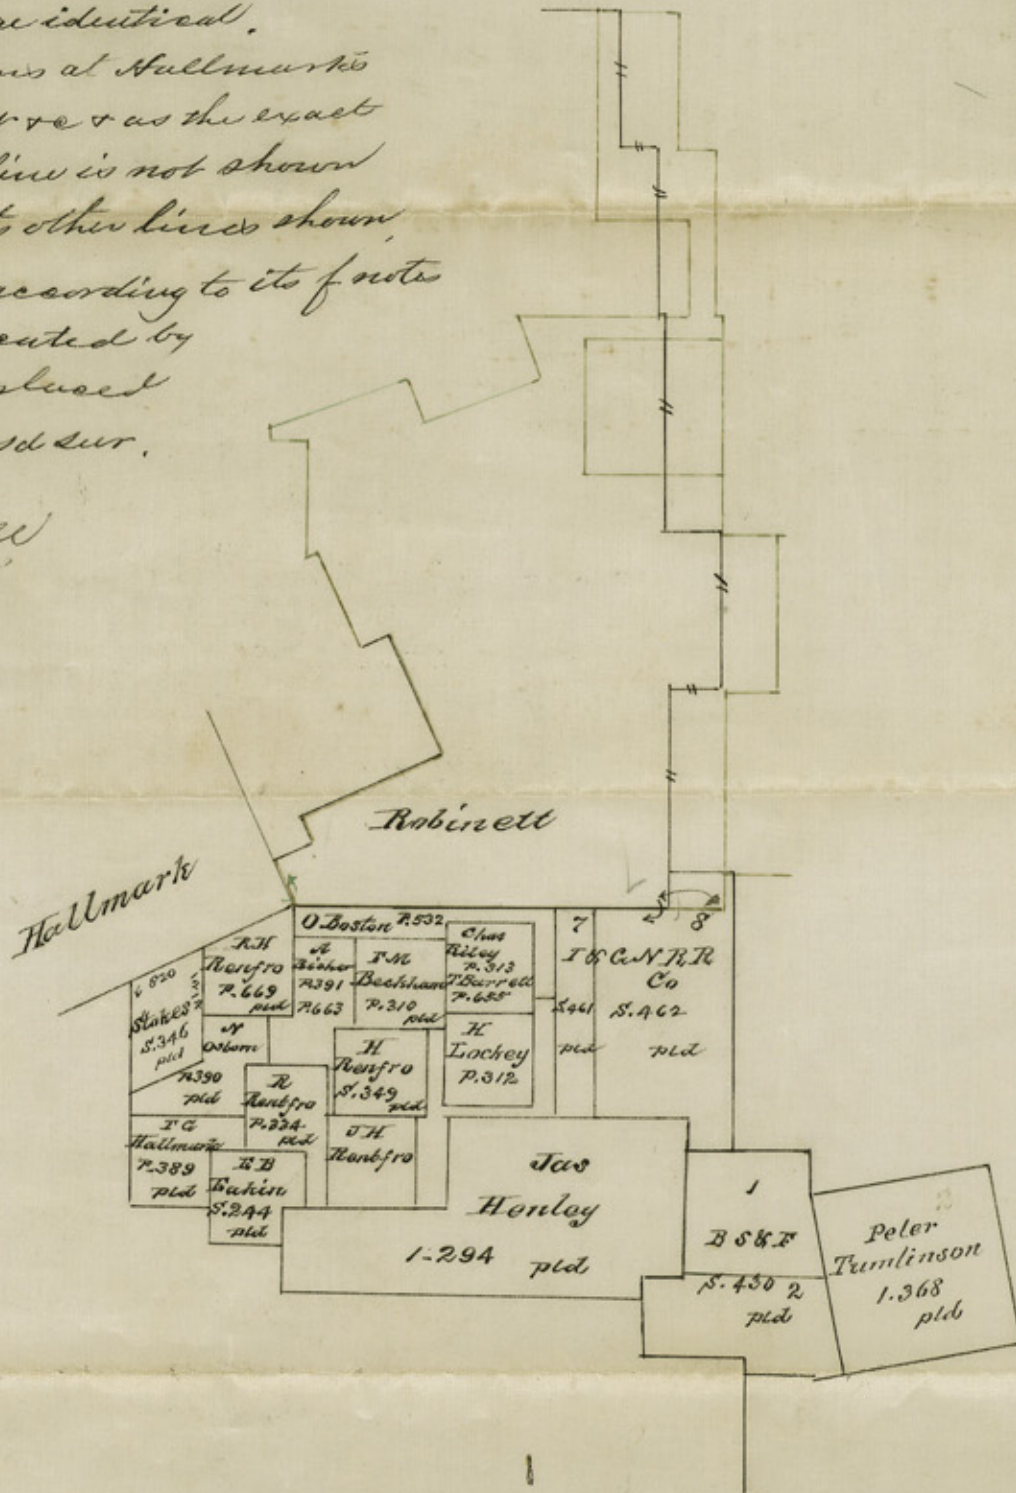 identical.
at Hallmark's
as the exact
line is not shown
other lines shown,
according to its f notes
by
placed
sd sur.
Robinett
Hallmark
O Boston P.532
R H
Renfro
P.669
pld
A
P.391
P.663
F M
Beckham
P.310
pld
Chas
Riley
P.313
T Barrett
P.655
7
8
I & G N R R
Co
S.461
pld
S.462
pld
820
Stakes
S.346
pld
N
Osborn
P.390
pld
R
Rentfro
P.334
pld
H
Renfro
S.349
pld
H
Lockey
P.312
Hallmark
P.389
pld
E B
Eakin
S.244
pld
J H
Rentfro
Jas
Henley
1-294 pld
1
B S & F
S. 430 2
pld
Peter
Tumlinson
1.368
pld